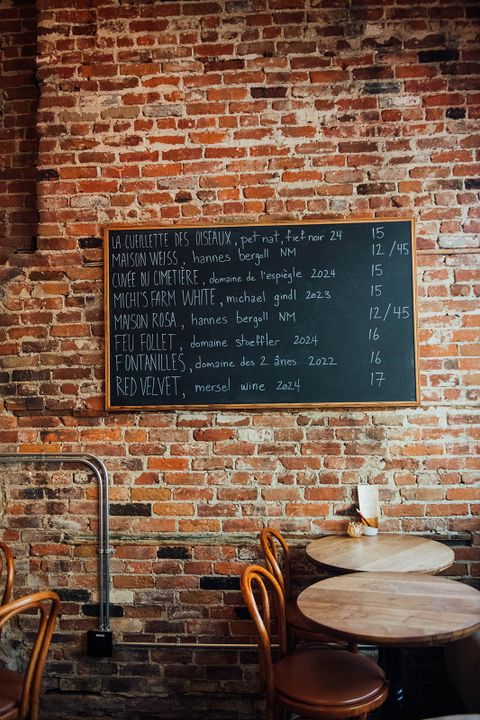 LA CUEILLETTE DES OISEAUX, pet nat, fief noir 24 15
MAISON WEISS, hannes bergoll NM 12/45
CUVÉE DU CIMETIÈRE, domaine de l'espiègle 2024 15
MICHI'S FARM WHITE, michael gindl 2023 15
MAISON ROSA, hannes bergoll NM 12/45
FEU FOLLET, domaine stoeffler 2024 16
FONTANILLES, domaine des 2 ânes 2022 16
RED VELVET, mersel wine 2024 17